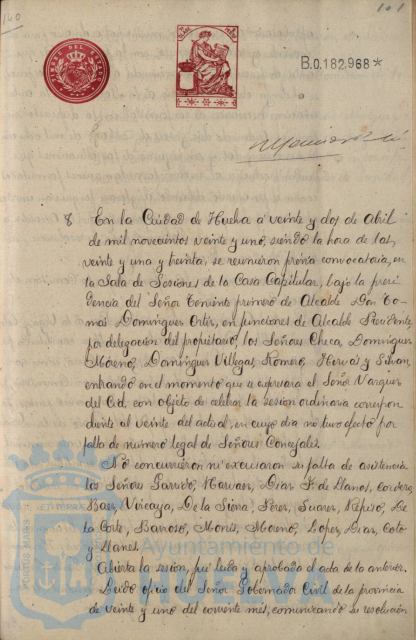 140
101
TIMBRE DEL ESTADO
B.0.182.968*
8 En la Ciudad de Huelva á veinte y dos de Abril
de mil novecientos veinte y uno, siendo la hora de las
veinte y una y treinta, se reunieron previa convocatoria, en
la Sala de Sesiones de la Casa Capitular, bajo la presi
dencia del Señor Teniente primero de Alcalde Don To-
mas Dominguez Ortiz, en funciones de Alcalde Presidente
por delegación del propietario, los Señores Checa, Dominguez
Moreno, Dominguez Villegas, Romero, Hervas y
entrando en el momento que se expresara el Señor Vazquez
del Cid con objeto de celebrar la sesion ordinaria correspon
diente al veinte del actual, en cuyo dia no tuvo efecto por
falta de numero legal de Señores Concejales.
No concurrieron ni excusaron su falta de asistencia
los Señores Garrido, Narvaez, Diaz F. de Llanos, Cordero,
Baez, Vizcaya, De la Sierra, Perez, Suarez, Repiso, De
la Corte, Barroso, Monis, Moreno, Lopez, Diaz, Coto
y Llanes.
Abierta la sesión, fué leida y aprobada el acta de la anterior.
Leido oficio del Señor Gobernador Civil de la provincia
de veinte y uno del corriente mes, comunicando su resolución
PORTUS MARIS
Ayuntamiento de
HUELVA